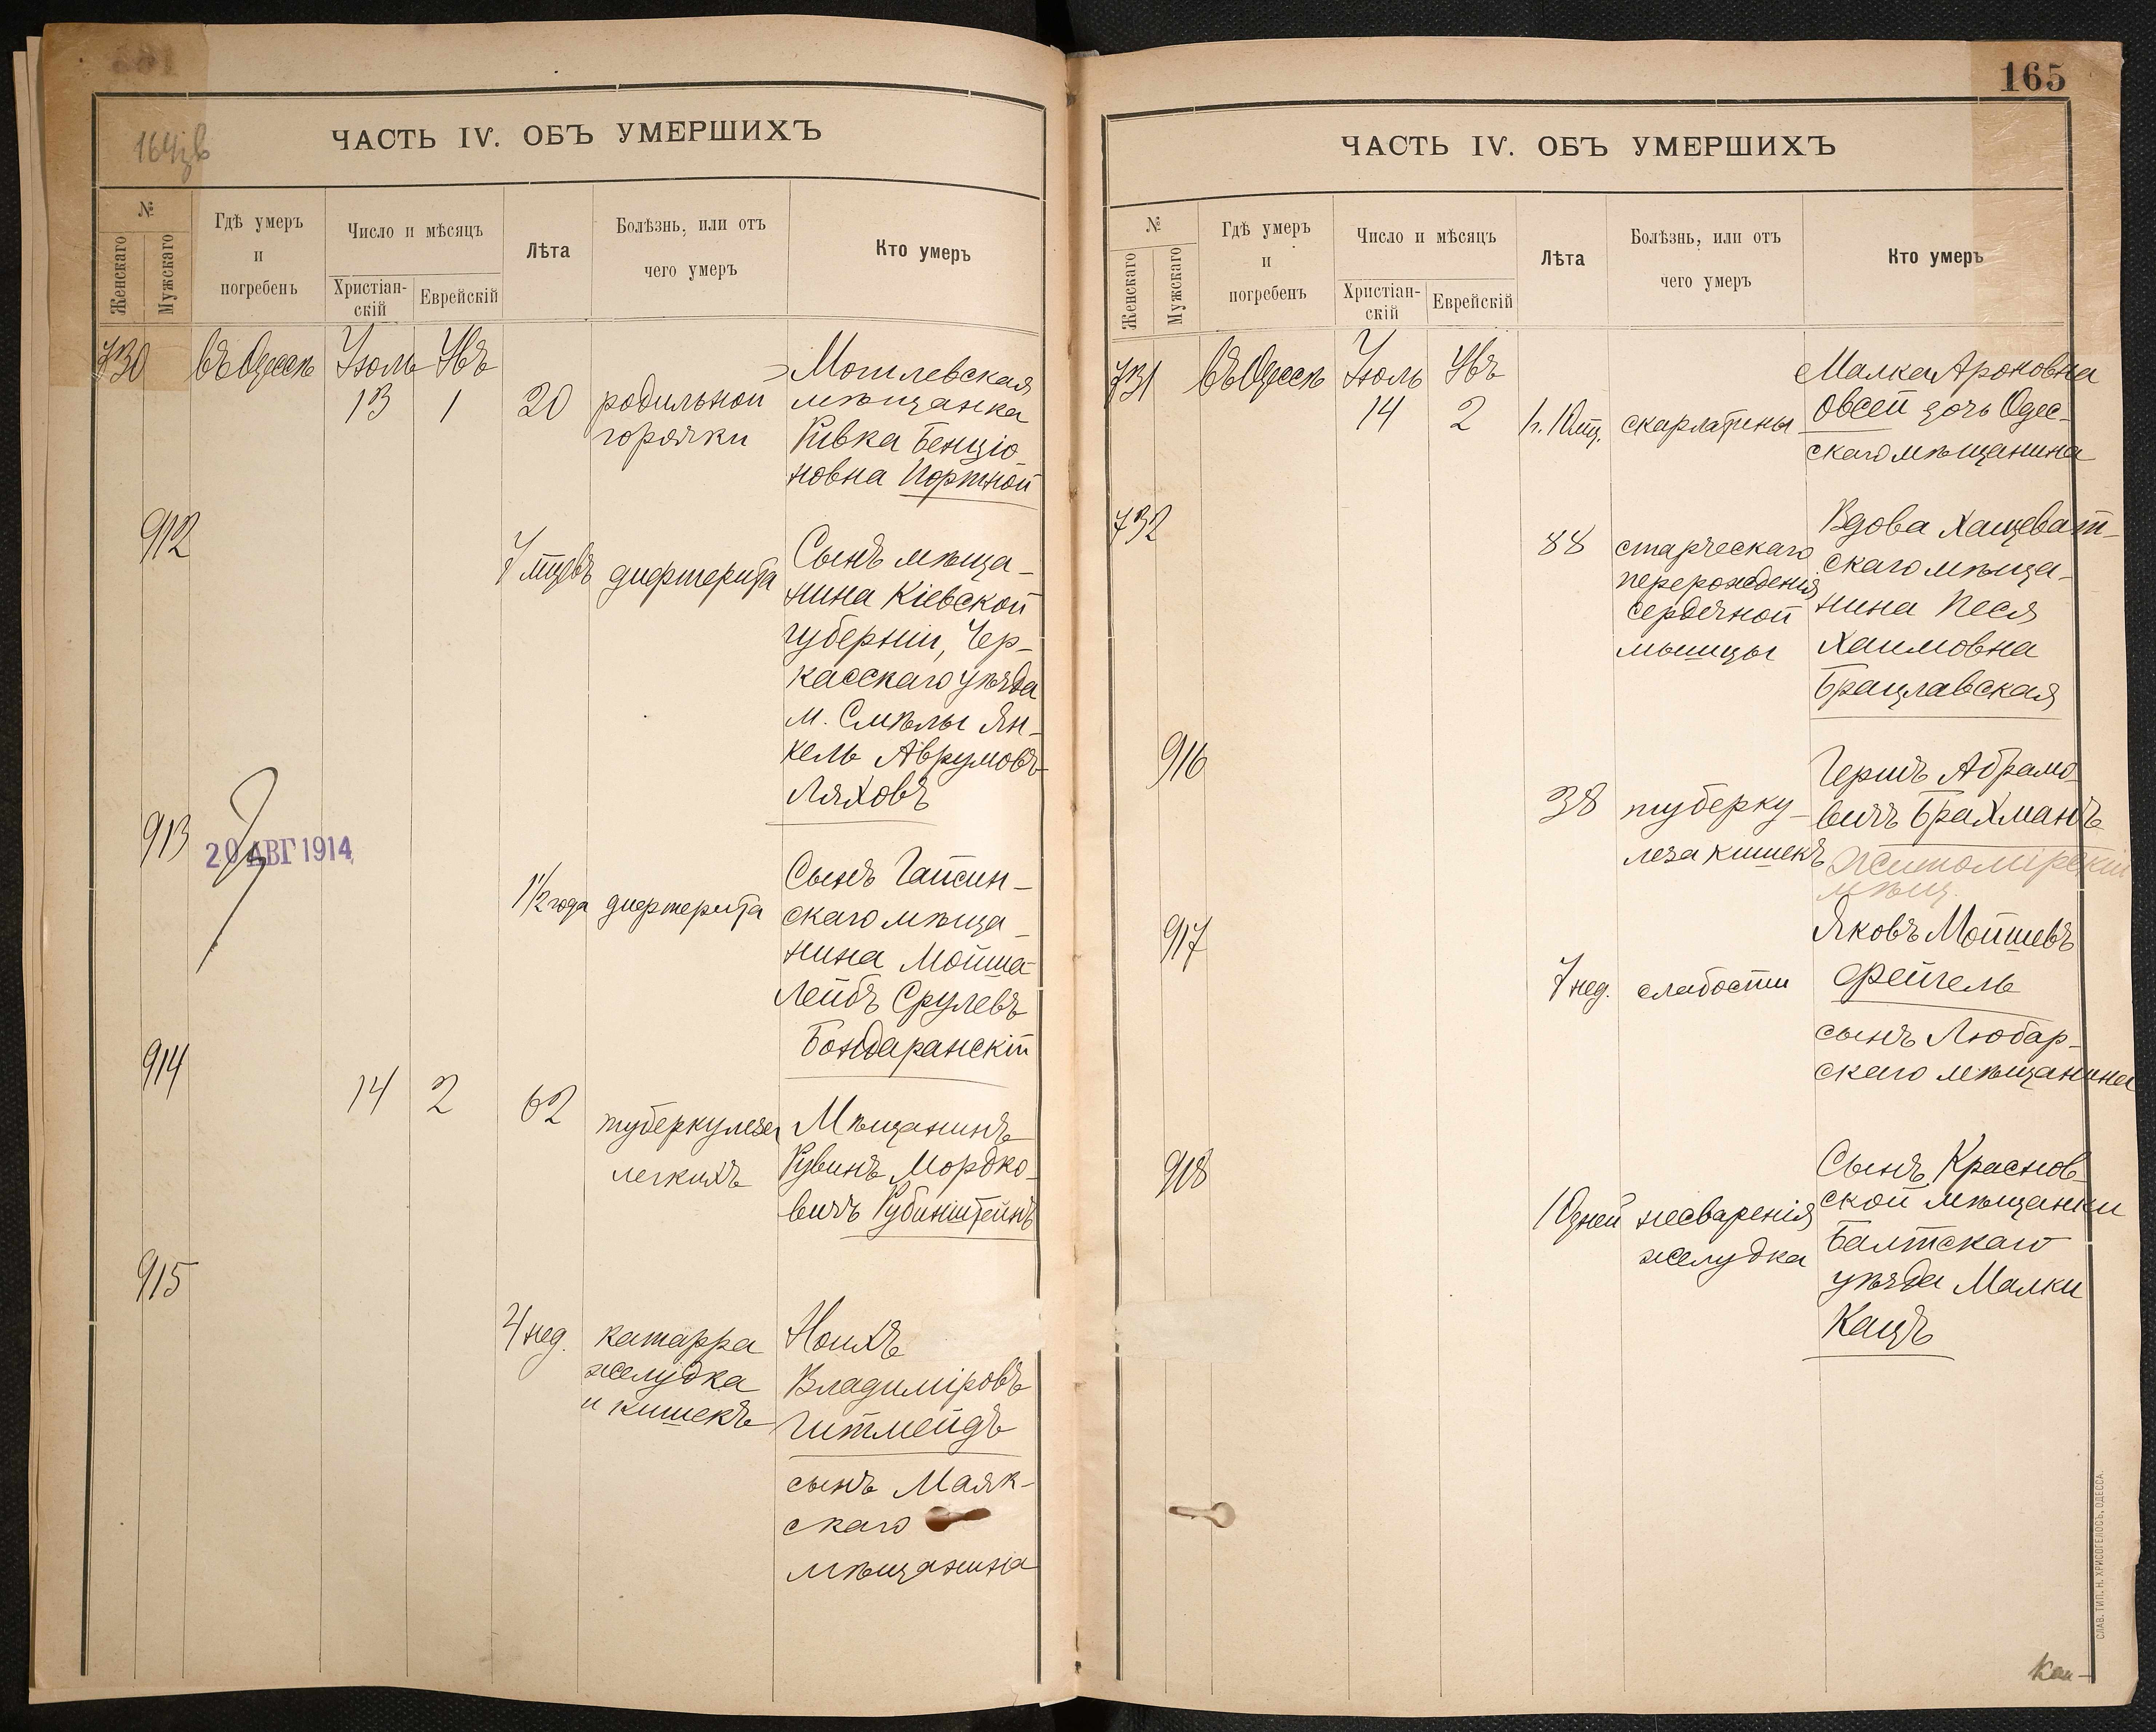 164зв
ЧАСТЬ IV. ОБЪ УМЕРШИХЪ
№
Женскаго
Мужскаго
Гдѣ умеръ
и
погребенъ
Число и мѣсяцъ
Христіан-
скій
Еврейскій
Лѣта
Болѣзнь, или отъ
чего умеръ
Кто умеръ
730 въ Одессѣ Іюль Увъ
13 1 20
родильной
горячки
Могилевская
мѣщанка
Ривка Бенціо
новна Портной
912
7 мцевъ дифтерита
Сынъ мѣща-
нина Кіевской
губерніи, Чер-
касскаго уѣзда
м. Смѣлы Ян-
кель Аврумовъ
Ляховъ
913
20 АВГ 1914
1 1/2 года дифтерита
Сынъ Гайсин-
скаго мѣща-
нина Мойша
Лейбъ Срулевъ
Бондаранскій
914
14 2 62
туберкулеза
легкихъ
Мѣщанинъ
Рувинъ Мордко-
вичъ Рубинштейнъ
915
4 нед.
катарра
желудка
и кишекъ
Ноихъ
Владиміровъ
Гитмейдъ
сынъ Маяк-
скаго
мѣщанина
165
ЧАСТЬ IV. ОБЪ УМЕРШИХЪ
№
Женскаго
Мужскаго
Гдѣ умеръ
и
погребенъ
Число и мѣсяцъ
Христіан-
скій
Еврейскій
Лѣта
Болѣзнь, или отъ
чего умеръ
Кто умеръ
731 въ Одессѣ Іюль Увъ
14 2 1г. 10мц. скарлатины
Малка Ароновна
Овсей дочь Одес-
скаго мѣщанина
732
88
старческаго
перерожденія
сердечной
мышцы
Вдова Хащеват-
скаго мѣща-
нина Песя
Хаимовна
Брацлавская
916
38
туберку-
леза кишекъ
Гершъ Абрамо
вичъ Брахманъ
Житомірскій
мѣщ.
917
7 нед. слабости
Яковъ Мойшевъ
Фейгель
сынъ Любар-
скаго мѣщанина
918
10 дней
несваренія
желудка
Сынъ Краснов-
ской мѣщанки
Балтскаго
уѣзда Малки
Кацъ
СЛАВ. ТИП. Н. ХРИСОГЕЛОСЪ, ОДЕССА.